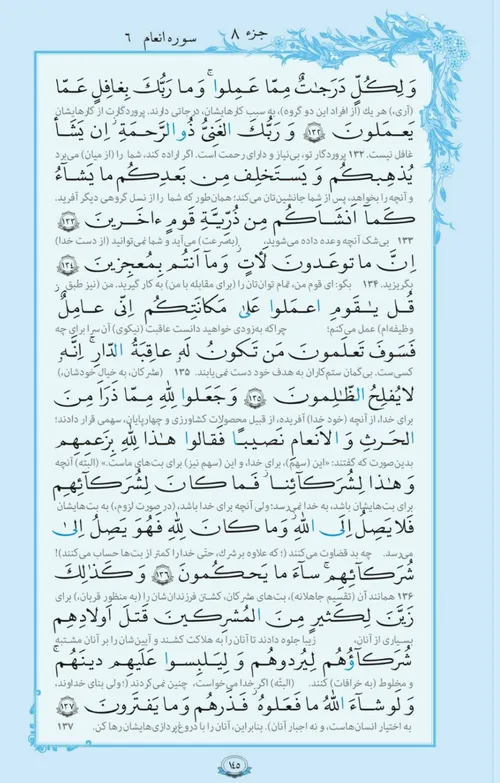 جزء ۸
سوره انعام ۶
وَ لِكُلٍّ دَرَجَاتٌ مِمَّا عَمِلوا ۚ وَ ما رَبُّكَ بِغافِلٍ عَمّا
(آری،) هر یک (از افراد این دو گروه)، به سبب کارهایشان، درجاتی دارند. پروردگارت از کارهایشان
يَعمَلونَ ﴿۱۳۲﴾ وَ رَبُّكَ الغَنِيُّ ذُو الرَّحمَةِ ۚ اِن يَشَأ
غافل نیست. ۱۳۲ پروردگار تو، بی‌نیاز و دارای رحمت است. اگر اراده کند، شما را (از میان) می‌برد
يُذهِبكُم وَ يَستَخلِف مِن بَعدِكُم ما يَشاءُ
و آنچه را بخواهد، پس از شما جانشین‌تان می‌کند؛ همان‌طور که شما را از نسل گروهی دیگر آفرید.
كَما اَنشَاَكُم مِن ذُرِّيَّةِ قَومٍ ءاخَرينَ ﴿۱۳۳﴾
۱۳۳ بی‌شک آنچه وعده داده می‌شوید، (به‌سرعت) می‌آید و شما نمی‌توانید (از دست خدا)
اِنَّ ما توعَدونَ لَآتٍ ۖ وَ ما اَنتُم بِمُعجِزينَ ﴿۱۳۴﴾
بگریزید. ۱۳۴ بگو: ای قوم من، تمام توان‌تان را (برای مقابله با من) به کار گیرید. من (نیز طبق
قُل يا قَومِ اعمَلوا عَلىٰ مَكانَتِكُم اِنّي عامِلٌ ۖ
وظیفه‌ام) عمل می‌کنم؛ چراکه به‌زودی خواهید دانست عاقبت (نیکوی) آن سرا برای چه
فَسَوفَ تَعلَمونَ مَن تَكونُ لَهُ عاقِبَةُ الدّارِ ۗ اِنَّهُ
کسی‌ست. بی‌گمان ستم‌کاران به هدف خود دست نمی‌یابند. ۱۳۵ (مشرکان، به خیال خودشان،)
لا يُفلِحُ الظّالِمونَ ﴿۱۳۵﴾ وَ جَعَلوا لِلّٰهِ مِمّا ذَرَاَ مِنَ
برای خدا، از آنچه (خود خدا) آفریده، از قبیل محصولات کشاورزی و چهارپایان، سهمی قرار دادند؛
الحَرثِ وَ الاَنعامِ نَصيبًا فَقالوا هٰذا لِلّٰهِ بِزَعمِهِم
بدین‌صورت که گفتند: «این (سهم)، برای خدا، و این (سهم نیز) برای بت‌های ماست.» (البته) آنچه
وَ هٰذا لِشُرَكائِنا ۖ فَما كانَ لِشُرَكائِهِم
برای بت‌هایشان باشد، به خدا نمی‌رسد؛ ولی آنچه برای خدا باشد، (در صورت لزوم،) به بت‌هایشان
فَلا يَصِلُ اِلَى اللهِ ۖ وَ ما كانَ لِلّٰهِ فَهُوَ يَصِلُ اِلىٰ
می‌رسد. چه بد قضاوت می‌کنند (؛ که علاوه بر شرک، حتّی خدا را کمتر از بت‌ها حساب می‌کنند)!
شُرَكائِهِم ۗ ساءَ ما يَحكُمونَ ﴿۱۳۶﴾ وَ كَذٰلِكَ
۱۳۶ همانند آن (تقسیم جاهلانه)، بت‌های مشرکان، کشتن فرزندان‌شان را (به منظور قربان،) برای
زَيَّنَ لِكَثيرٍ مِنَ المُشرِكينَ قَتلَ اَولادِهِم
بسیاری از آنان، زیبا جلوه دادند تا آنان را به هلاکت کشند و آیین‌شان را بر آنان مشتبه
شُرَكاؤُهُم لِيُردوهُم وَ لِيَلبِسوا عَلَيهِم دينَهُم ۖ
و مخلوط (به خرافات) کنند. (البتّه) اگر خدا می‌خواست، چنین نمی‌کردند (؛ ولی بنای خداوند،
وَ لَو شاءَ اللهُ ما فَعَلوهُ ۖ فَذَرهُم وَ ما يَفتَرونَ ﴿۱۳۷﴾
به اختیار انسان‌هاست، و نه اجبار آنان). بنابراین، آنان را با دروغ‌پردازی‌هایشان رها کن. ۱۳۷
۱۴۵